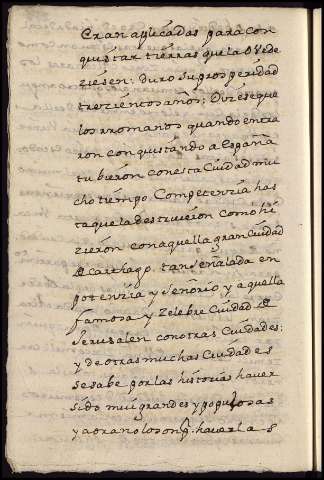 Eran aplicadas para con
quistar tierras que la obede
ziesen: duro su prosperidad
trezientos años: Dizese que
los rromanos quando entra
ron conquistando a España
tubieron con esta Ciudad mu
cho tiempo Competenzia has
ta que la destruieron como hi
zieron con aquella gran Ciudad
de Carthago, tan señalada en
potenzia y señorio y aquella
famosa y zelebre Ciudad de
Jerusalen con otras Ciudades:
y de otras muchas Ciudades
se sabe por las historias haver
sido mui grandes y populosas
y aora no lo son pr. haverlas